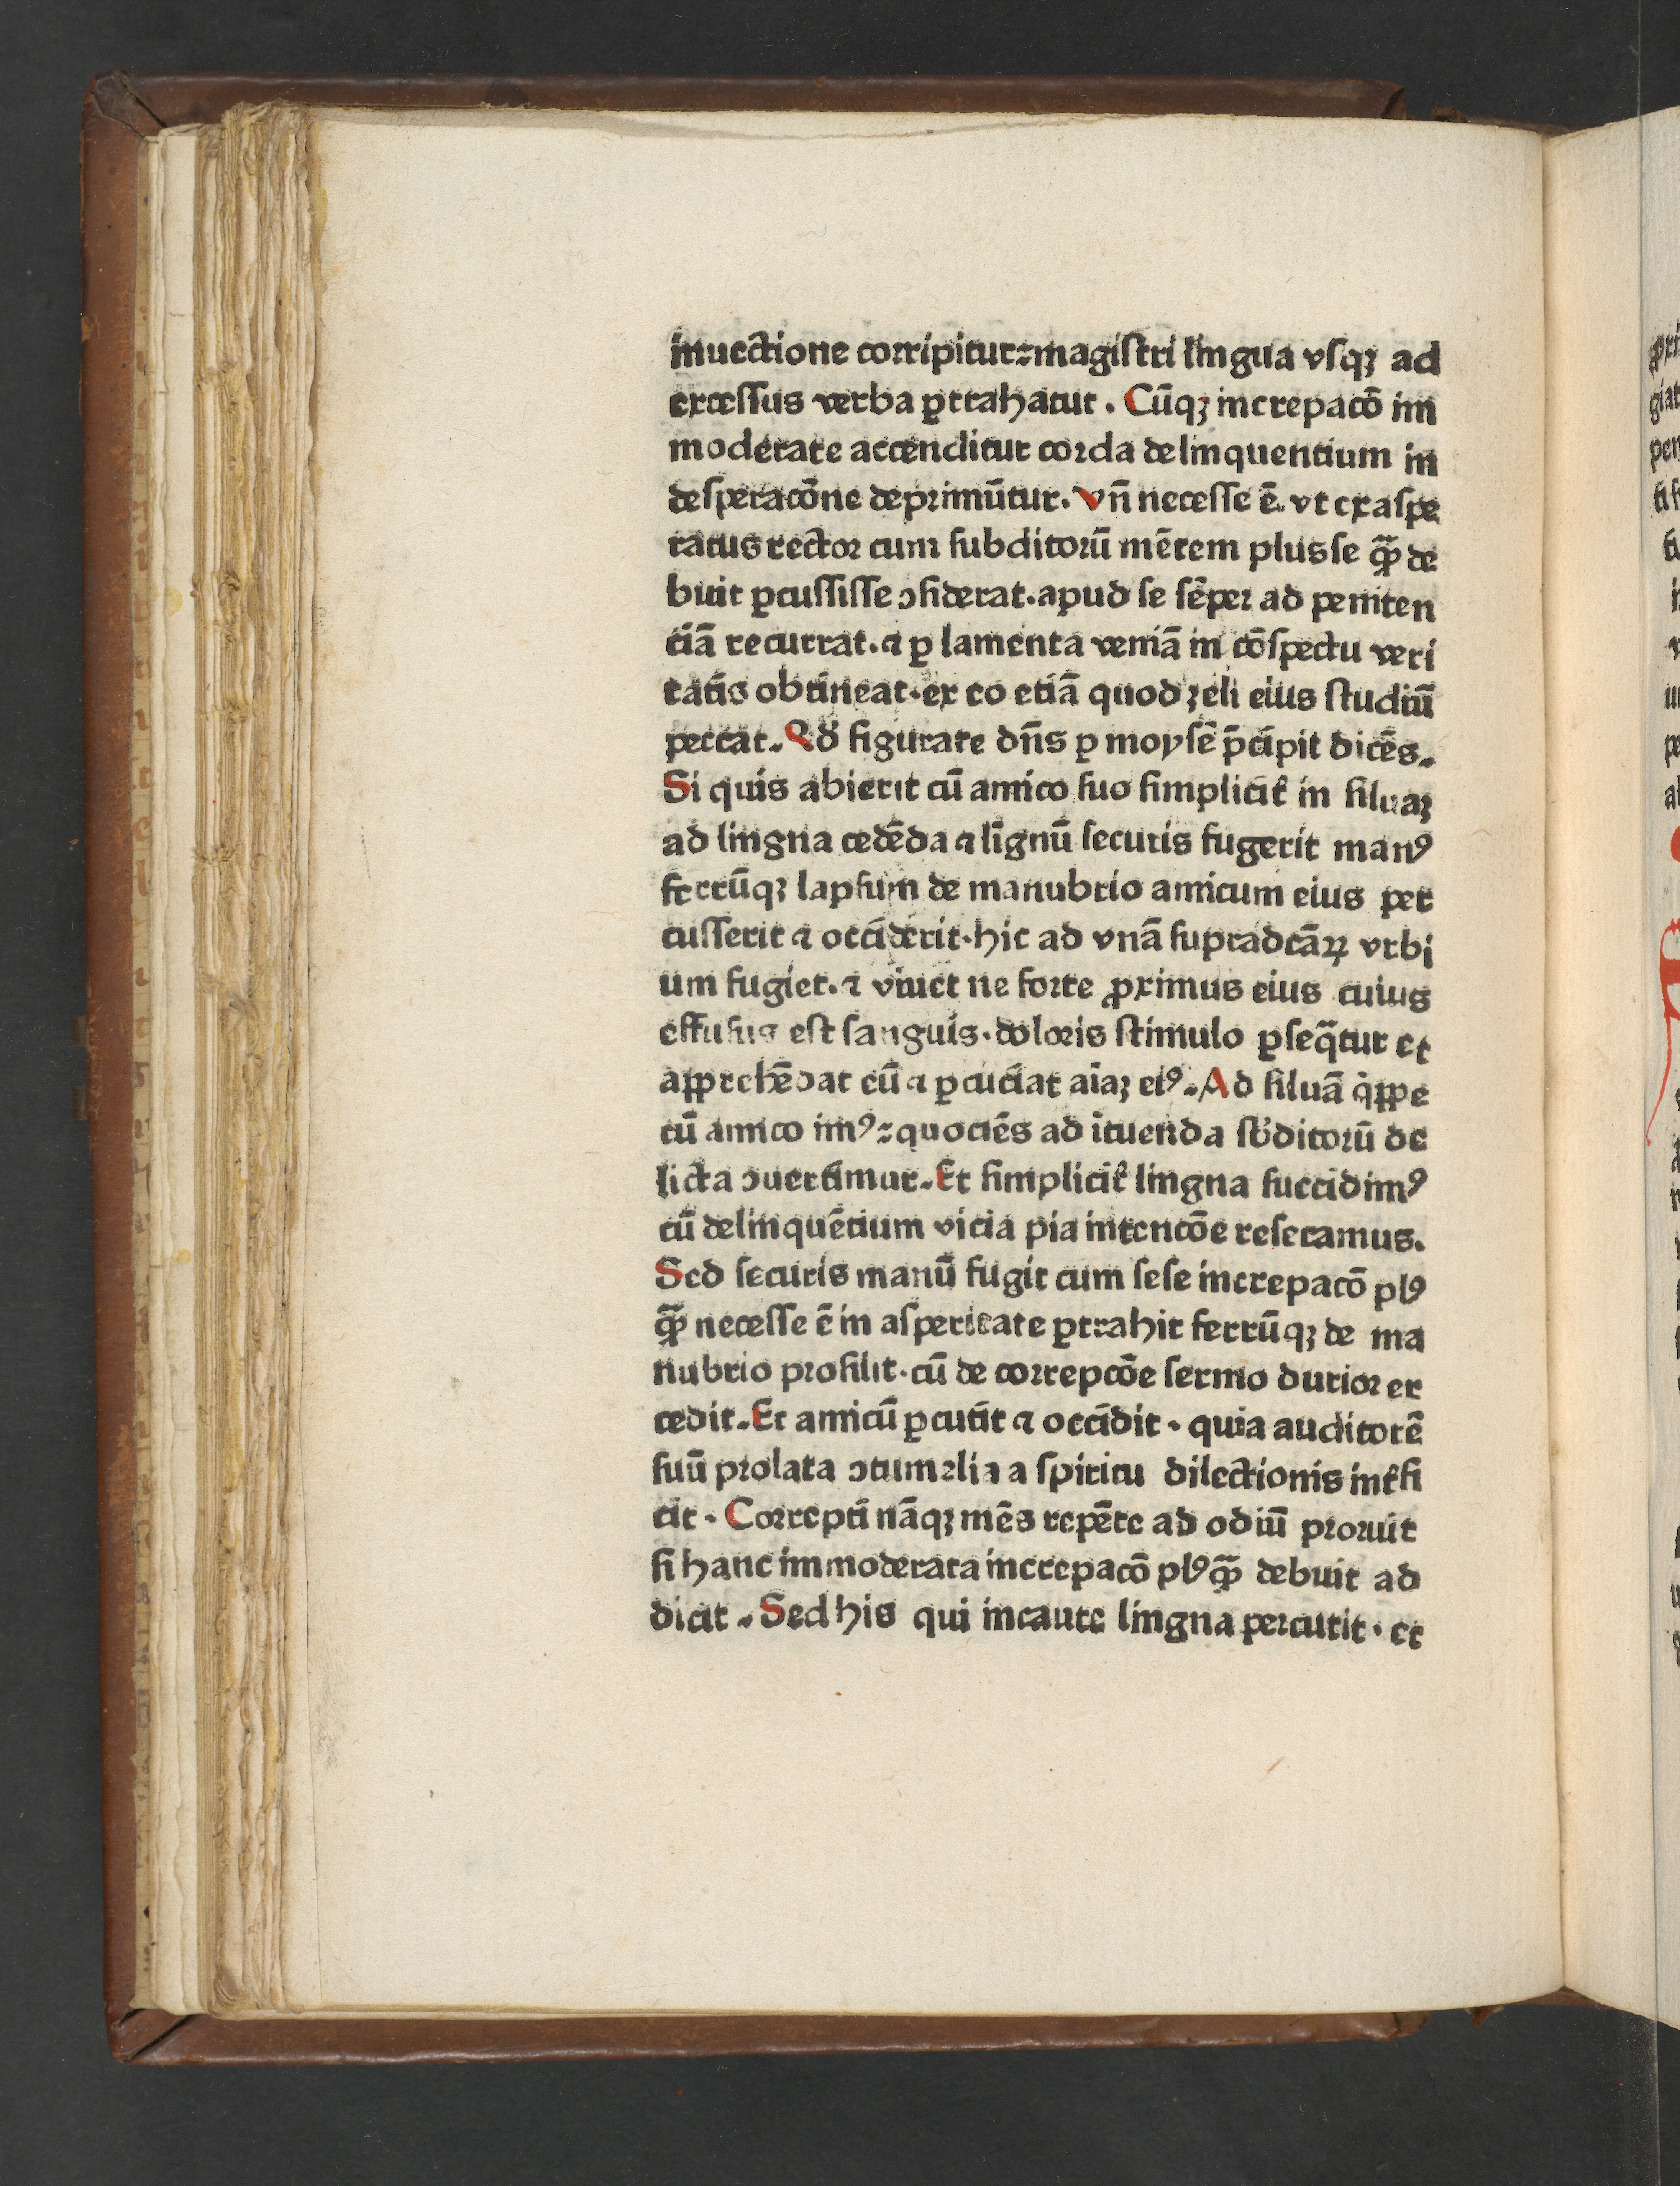 inuectione corripitur: magiſtri lingua vſqꝫ ad
exceſſus verba ꝑtrahatur. Cūqꝫ increpacō im
moderate accenditur corda delinquentium in
deſperacōne deprimūtur. Vn̄ neceſſe ē. vt exaſpe
ratus rector cum ſubditorū mētem plus ſe q̄ꝫ de
buit ꝑcuſſiſſe ↄſiderat. apud ſe ſēper ad peniten
ciā recurrat. ⁊ ꝑ lamenta veniā in cōſpectu veri
tatis obtineat. ex eo etiā quod zeli eius ſtudiū
peccat. Qđ figurate dn̄s ꝑ moyſē p̄cipit dicēs.
Si quis abierit cū amico ſuo ſimplicit̉ in ſiluaꝫ
ad lingna cedēda ⁊ lignū ſecuris fugerit manꝰ
ferrūqꝫ lapſum de manubrio amicum eius per
cuſſerit ⁊ occiderit. hic ad vnā ſupradcāꝝ vrbi
um fugiet. ⁊ viuet ne forte ꝓximus eius cuius
effuſus eſt ſanguis. doloris ſtimulo ꝑſeq̄tur et
apprehēdat eū ⁊ ꝑcuciat aīaꝫ eiꝰ. Ad ſiluā q̇ppe
cū amico imꝰ: quociēs ad ītuenda ſb̓ditorū de
licta ↄuertimur. Et ſimplicit̉ lingna ſuccidimꝰ
cū delinquētium vicia pia intencōe reſecamus.
Sed ſecuris manū fugit cum ſeſe increpacō plꝰ
q̄ꝫ neceſſe ē in aſperitate ꝑtrahit ferrūqꝫ de ma
nubrio proſilit. cū de correpcōe ſermo durior ex
cedit. Et amicū ꝑcutit ⁊ occidit. quia auditorē
ſuū prolata ↄtumelia a ſpiritu dilectionis int̉fi
cit. Correpti nāqꝫ mēs repēte ad odiū proruit
ſi hanc immoderata increpacō plꝰ q̄ꝫ debuit ad
dicit. Sed his qui incaute lingna percutit. et